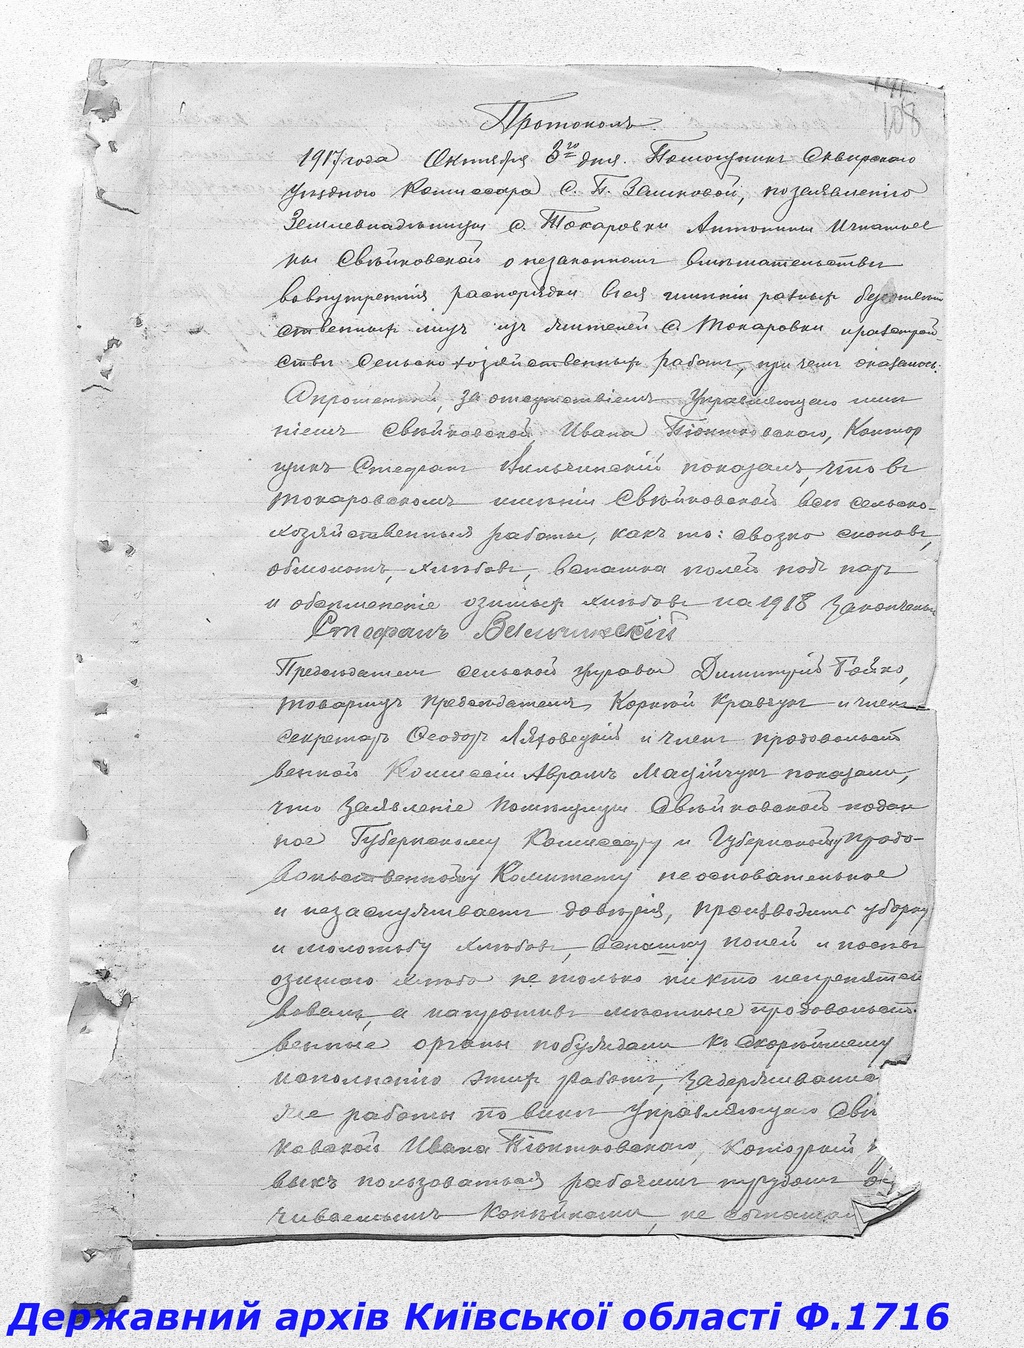 108
Протоколъ.
1917 года Октября 3го дня. Помощникъ Сквирскаго
уѣзднаго Комиссара С. П. Замковой, по заявленію
Землевладѣлицы с. Токаровки Антонины Игнатьев
ны Свѣйковской о незаконномъ вмѣшательствѣ
во внутреннія распорядки ея имѣнія разныхъ безответ
ственныхъ лицъ изъ жителей с. Токаровки и разстрой-
ствѣ сельско хозяйственныхъ работъ, при чемъ оказалось:
Опрошенный, за отсутствіемъ Управляющаго имѣ
ніемъ Свѣйковской, Ивана Піонтковскаго, Контор
щикъ Стефанъ показалъ, что въ
Токаровскомъ имѣніи Свѣйковской всѣ сельско-
хозяйственныя работы, какъ то: свозка сноповъ,
обмолотъ, хлѣбовъ, вспашка полей подъ паръ
и обсѣмененіе озимыхъ хлѣбовъ на 1918 закончены
Стефанъ
Предсѣдатель сельской управы Димитрій Бойко,
товарищъ предсѣдателя, Корній Кравчукъ и членъ-
секретарь Феодоръ Ляховецкій и членъ продовольст
венной Комиссіи Аврамъ показали,
что заявленіе помѣщицы Свѣйковской подан
ное Губернскому Комиссару и Губернскому продо-
вольственному Комитету неосновательное
и незаслуживаетъ довѣрія, производить уборку
и молотьбу хлѣбовъ, вспашку полей и посѣвъ
озимаго хлѣба не только никто непрепятст
вовалъ, а напротивъ мѣстные продовольст-
венные органы побуждали къ скорѣйшему
исполненію этихъ работъ, задерживались
же работы по винѣ Управляющаго Свѣ
ковской Ивана Піонтковскаго, который
выкъ пользоваться рабочимъ трудомъ
чиваемымъ копѣйками, не
Державний архів Київської області Ф.1716